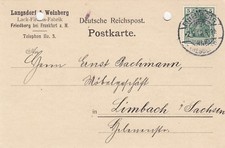 Langsdorf & Weinberg
Lack-Farben-Fabrik
Friedberg bei Frankfurt a. M.
Telephon Nr. 3.
Deutsche Reichspost.
Postkarte.
Herrn Ernst Bachmann
Möbelgeschäft
Limbach i/Sachsen